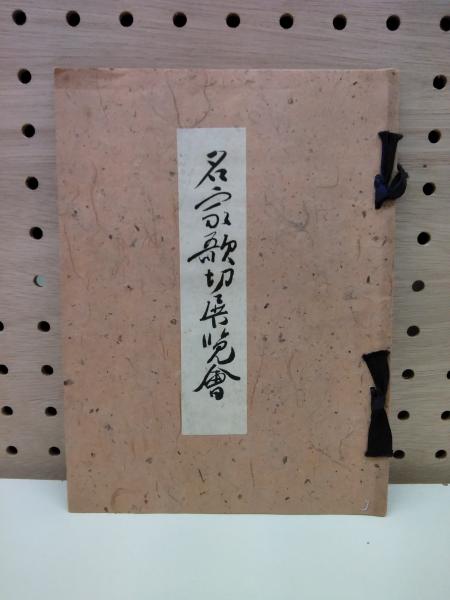 名家歌切展覧會